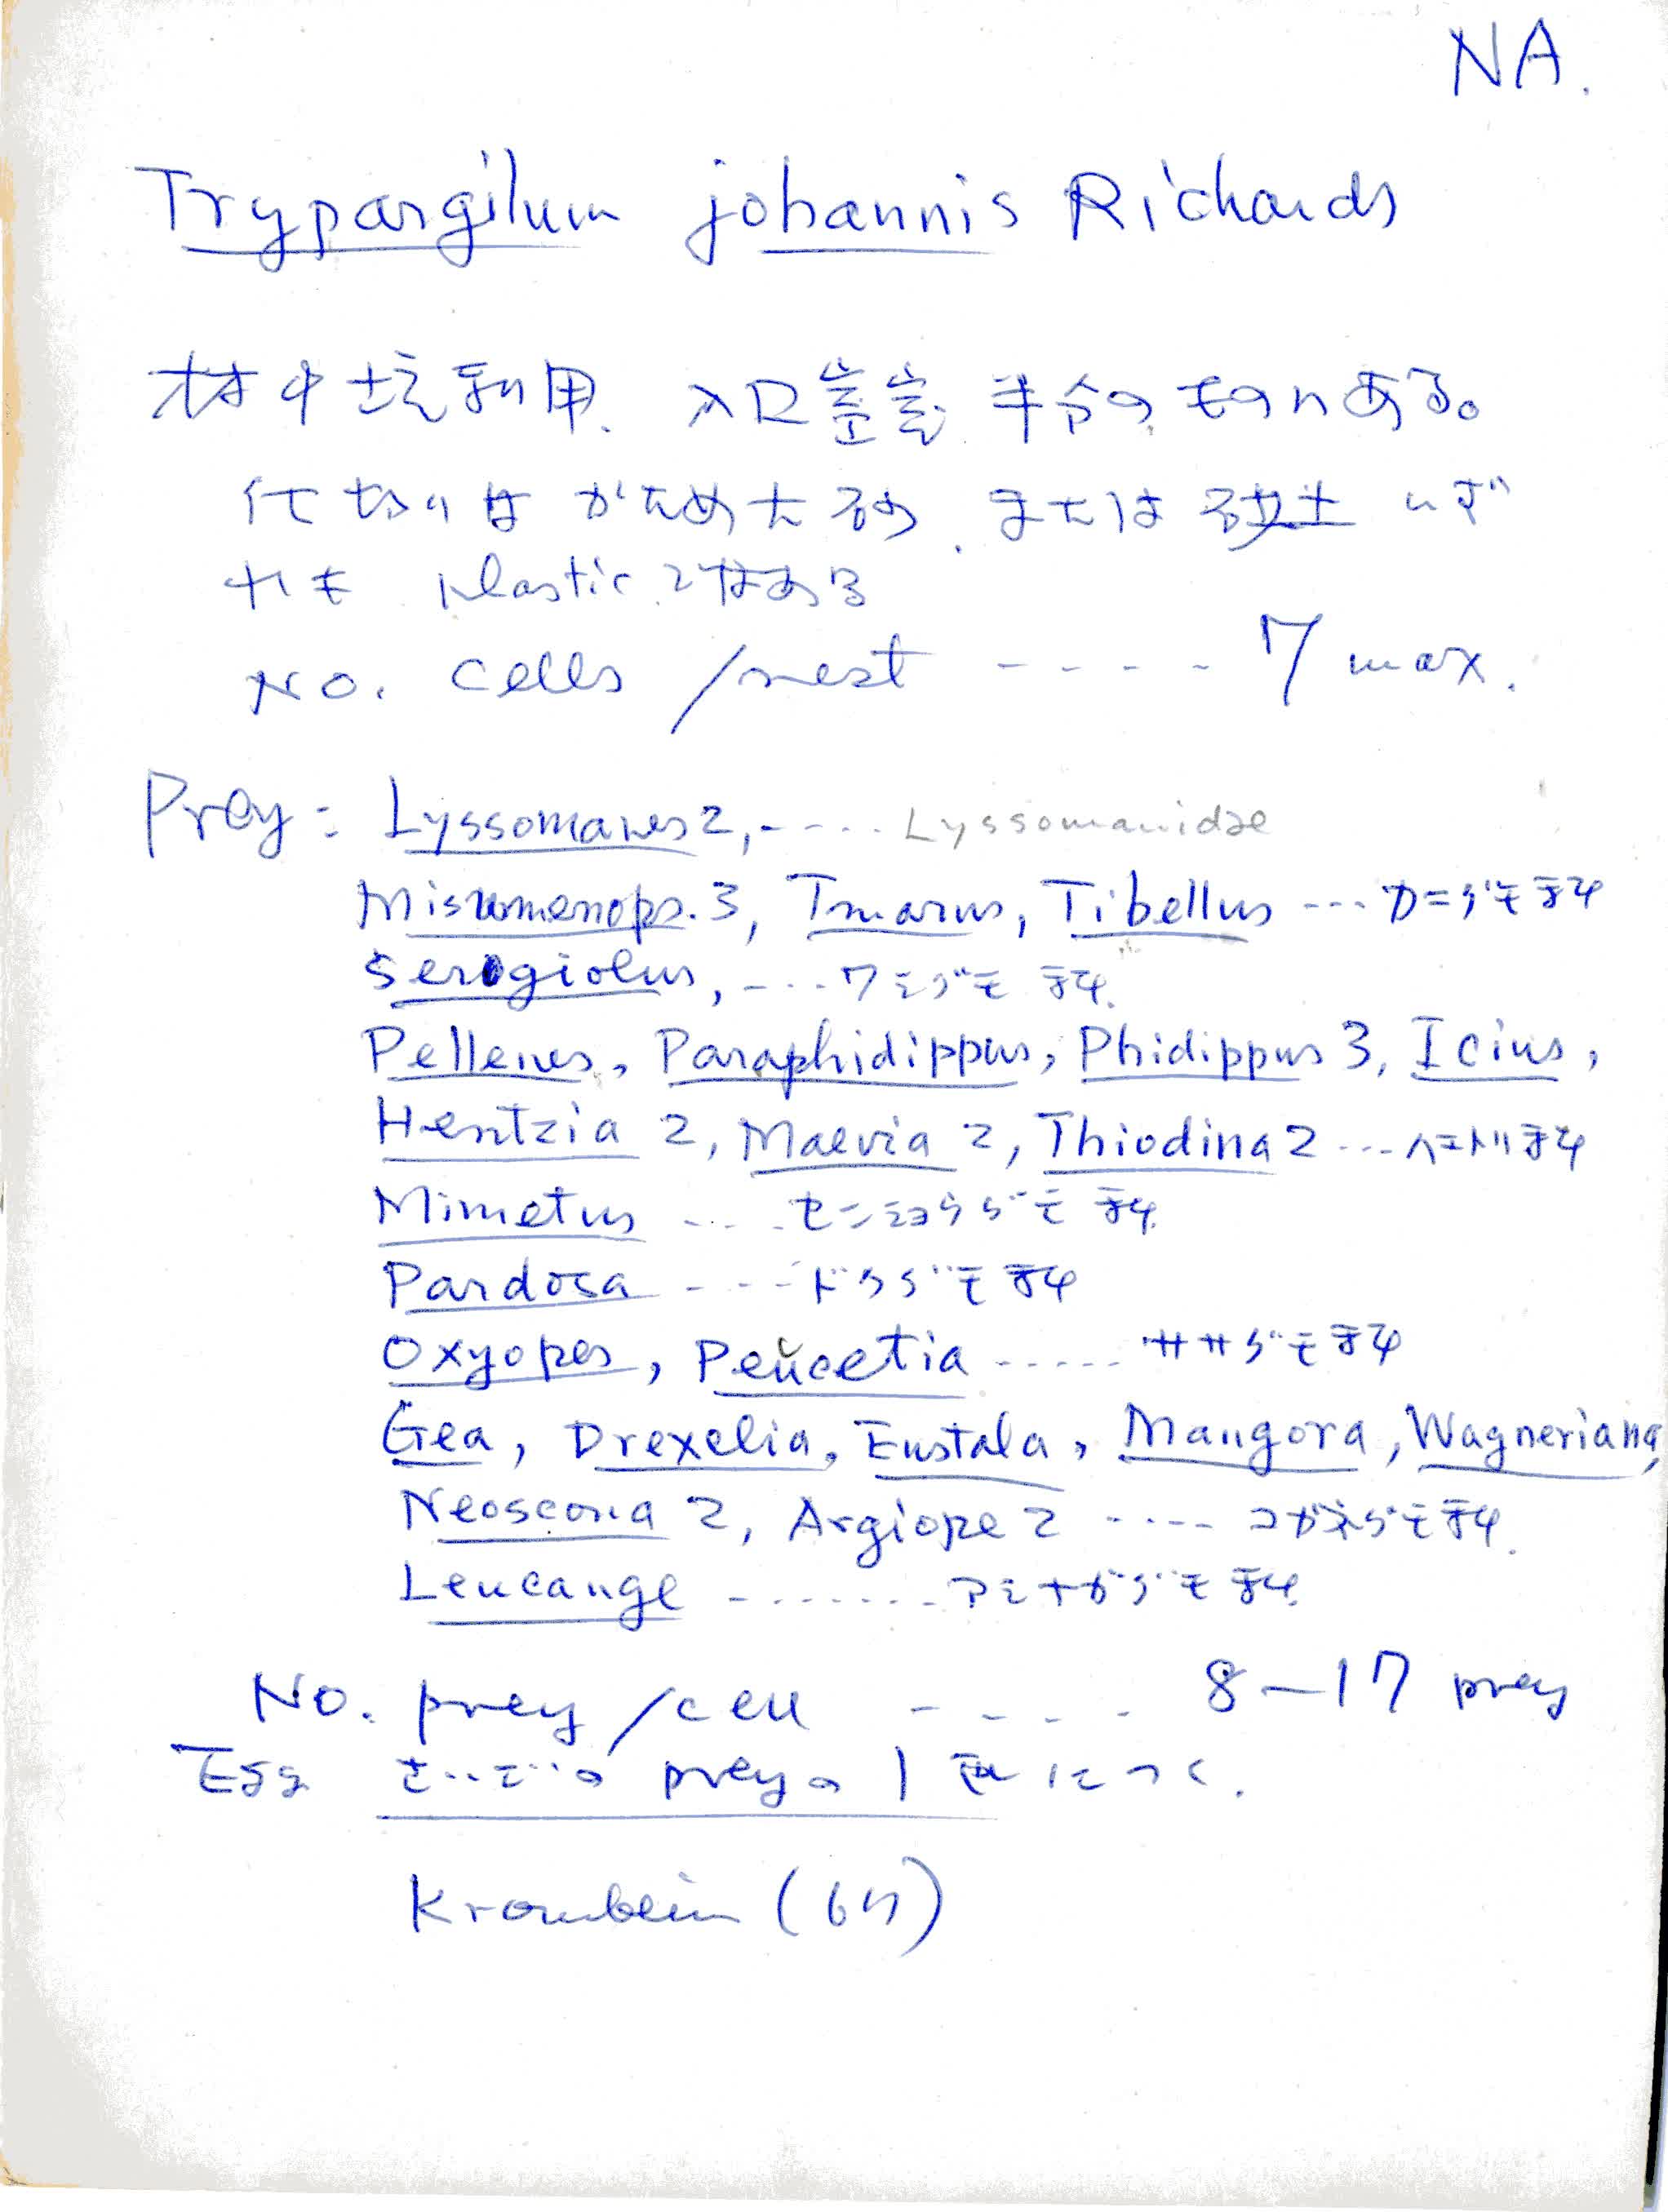 NA.
Trypargilum johannis Richards
材中坑利用. 入口 半分のものにある。
仕切りは かためた砂. または砂土 いず
れも plastic ではある
No. cells /nest ---- 7 max.
Prey: Lyssomanes 2, ---- Lyssomanidae
Misumenops. 3, Tmarus, Tibellus --- カニグモ科
Sergiolus, --- ワシグモ科.
Pellenes, Paraphidippus, Phidippus 3, Icius,
Hentzia 2, Maevia 2, Thiodina 2 --- ハエトリ科
Mimetus ---- センショウグモ科.
Pardosa ---- ドクグモ科
Oxyopes, Peucetia ----- ササグモ科
Gea, Drexelia, Eustala, Mangora, Wagneriana,
Neoscona 2, Argiope 2 ---- コガネグモ科.
Leucauge ------- アシナガグモ科.
No. prey /cell ---- 8-17 prey
Egg さいごの preyの1 につく.
Krombein (67)